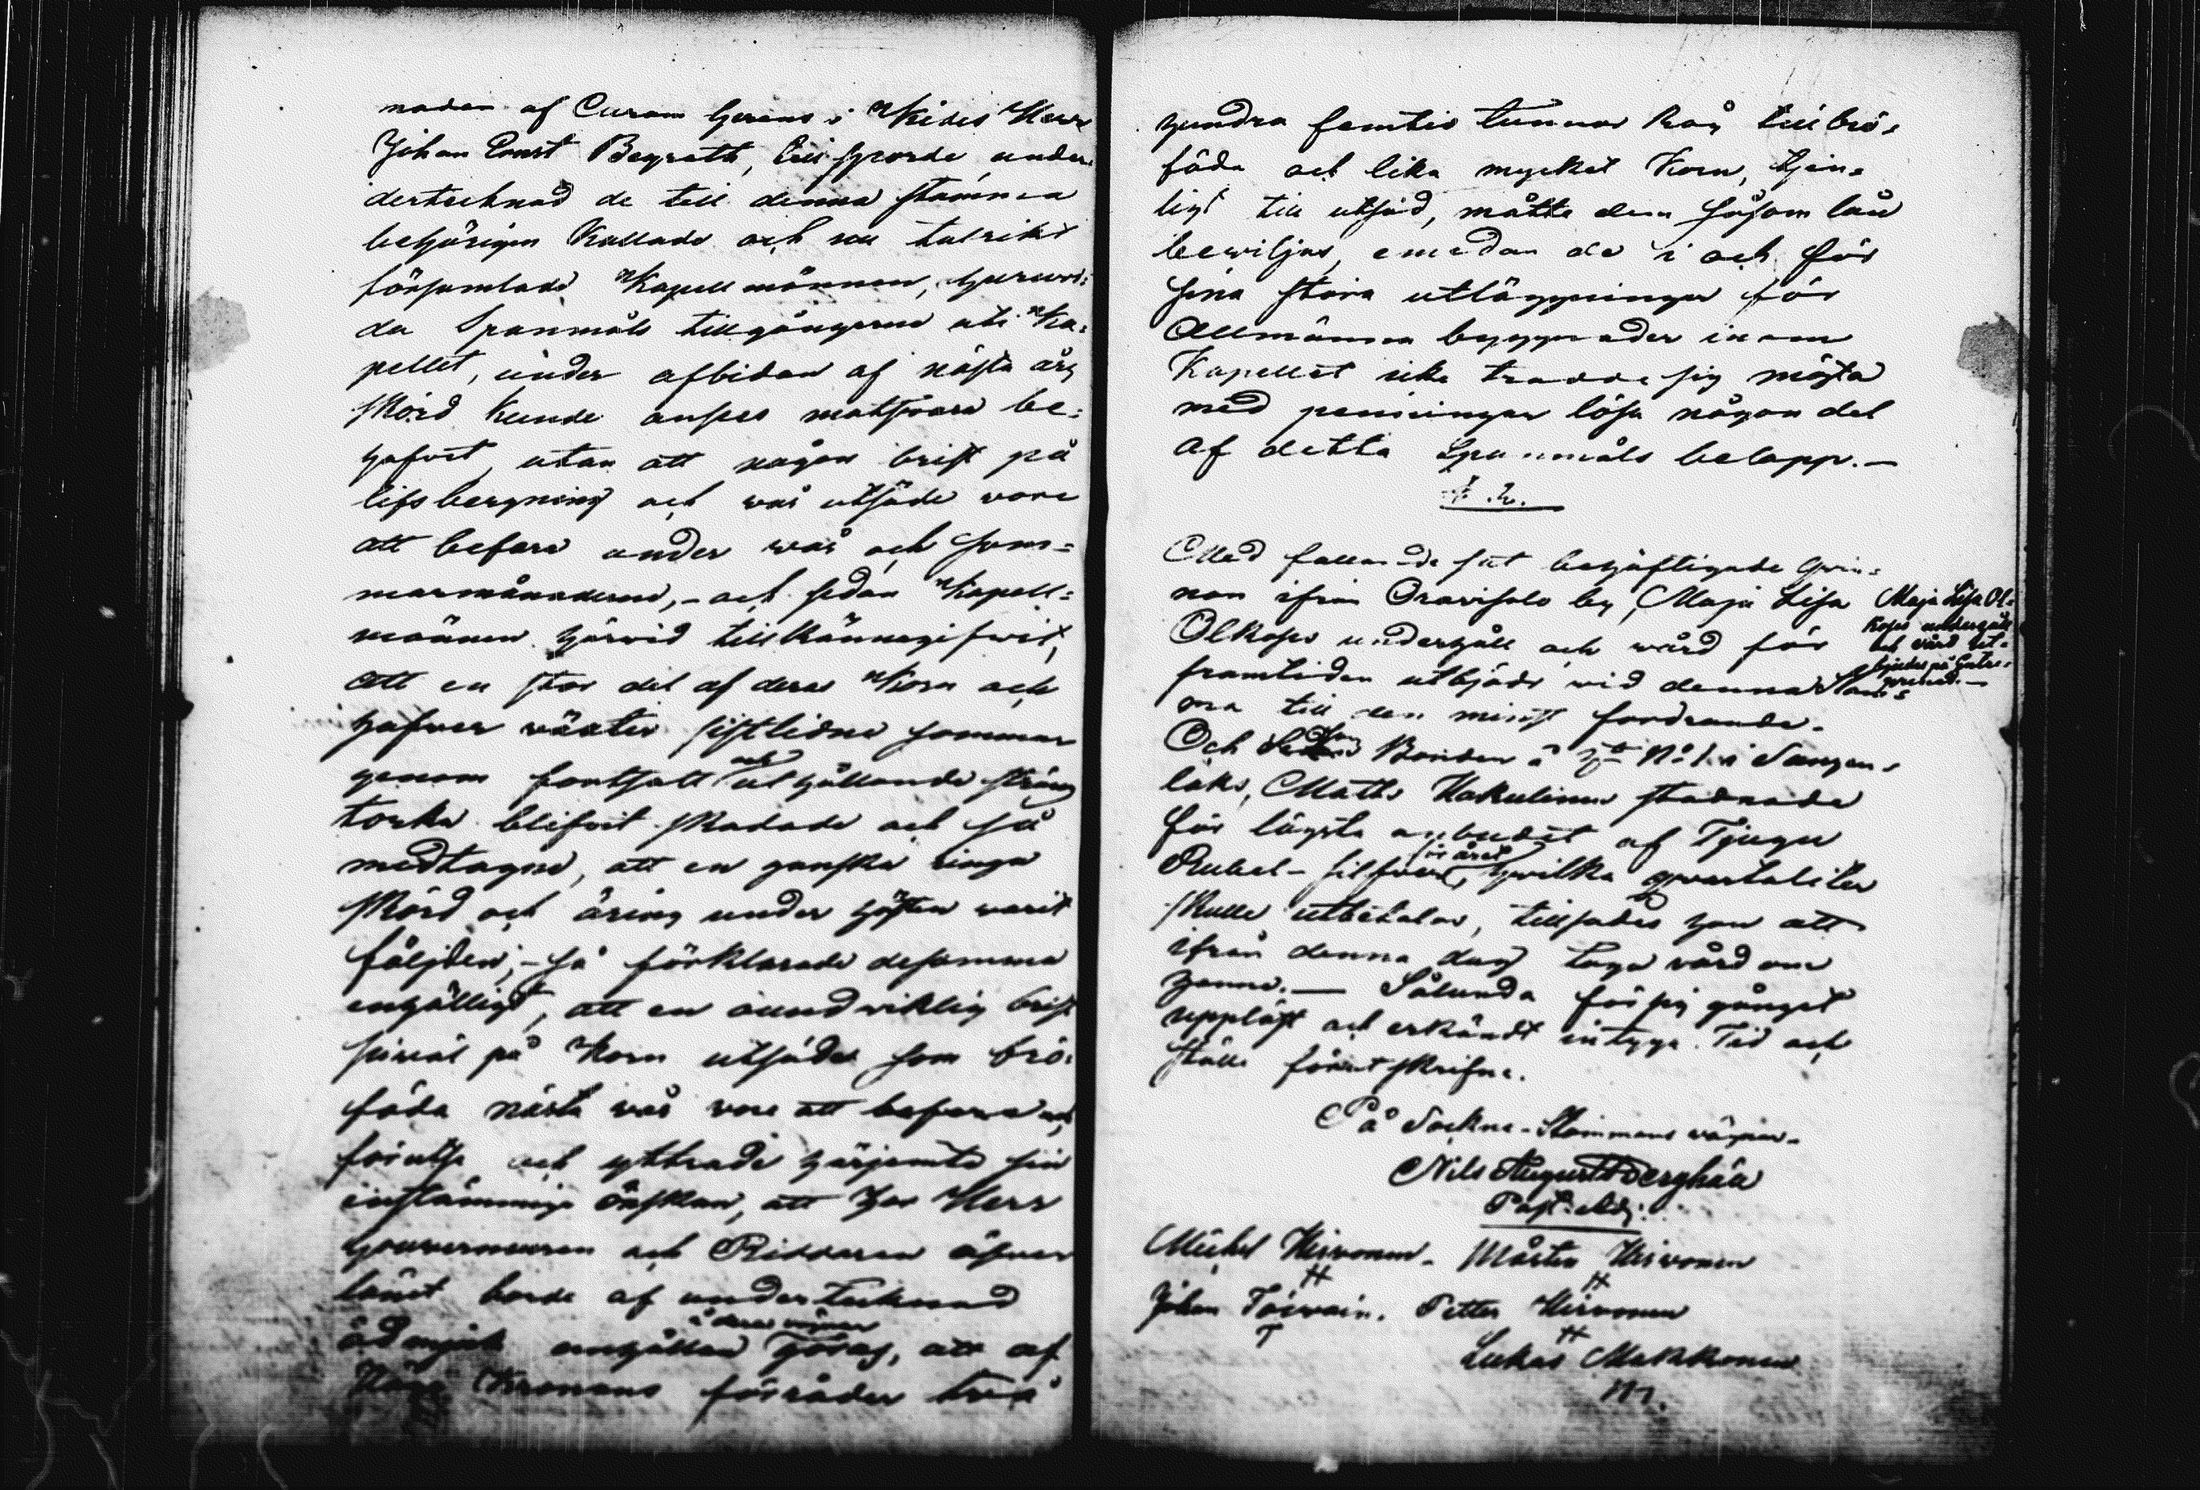 naden af Curam Gerens i Kides Herr
Johan Ernst Bergroth, tillsporde under
dertecknad de till denna stämma
behörigen Kallade och nu talrikt
församlade Kapellmännen, huruvi=
da Spanmåls tillgångarne uti Ka=
pellet, under afbidan af nästa års
skörd kunde anses motsvara be=
hofvet, utan att någon brist på
lifsbergning och vår utsäde vore
att befara under vår och som=
marmånaderne, - och sedan Kapell=
männen härvid tillkännagifvit,
att en stor del af deras Korn och
hafver växter sistlidne sommar
genom fortsatt och uthållande sträng
torka blifvit skadade och så
medtagne, att en ganska ringa
skörd och äring under hösten varit
följden; - så förklarade desamma
enhälligt, att en oundviklig brist
såväl på Korn utsäde som brö=
föda nästa vår vore att befara och
förutse och yttrade härjemte sin
enstämmiga önskan, att hos Herr
Gouverneuren och Riddaren öfver
länet borde af undertecknad
ödmjuk anhållan å deras vägnar göras, att af
Höga Kronans förråder två
hundra femtio tunnor Råg till brö=
föda och lika mycket Korn, tjen=
ligt till utsäd, måtte dem såsom lån
beviljas, emedan de i och för
sina stora utläggningar för
Allmänna byggnader inom
Kapellet icke trodde sig mäkta
med penningar lösa någon del
af detta Spanmåls belopp. —
§. 2.
Med fallande sot behäftigade qvin=
nan ifrån Oravisalo by, Maja Lisa
Olkoses underhåll och vård för
framtiden utbjöds vid denna Stäm=
ma till den minst fordrande.
Maja Lisa Ol=
koses underhåll
och vård ut=
bjudes på Entre=
prenad. —
Och sedan Bonden å No 1 i
laks, Matts Hakulinen stadnade
för lägsta anbudet af Tjugu
Rubel Silfver för året, hvilka qvartaliter
skulle utbetalas, tillsades han att
ifrån denna dag taga vård om
henne. — Sålunda för sig gånget
uppläst och erkändt intyga. Tid och
ställe förutskrifne.
På Sockne-Stämmans vägnar.
Nils August
Past: Adj:
Michel Hirvonen. Mårten Hirvonen
H H
Johan Toivain. Petter Hirvonen
T H
Lukas Makkonen
m.